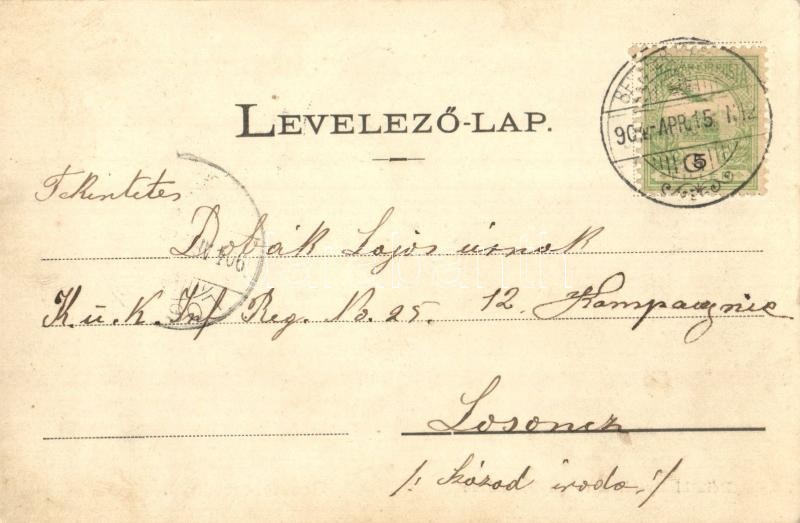 LEVELEZŐ-LAP.
MAGYAR KIR. POSTA
90 -APR.15.
5
Tekintetes
Dobák Lajos úrnak
K. u. K. Inf Reg. No. 25. 12. Kompagnie
Losoncz
/: Század iroda :/